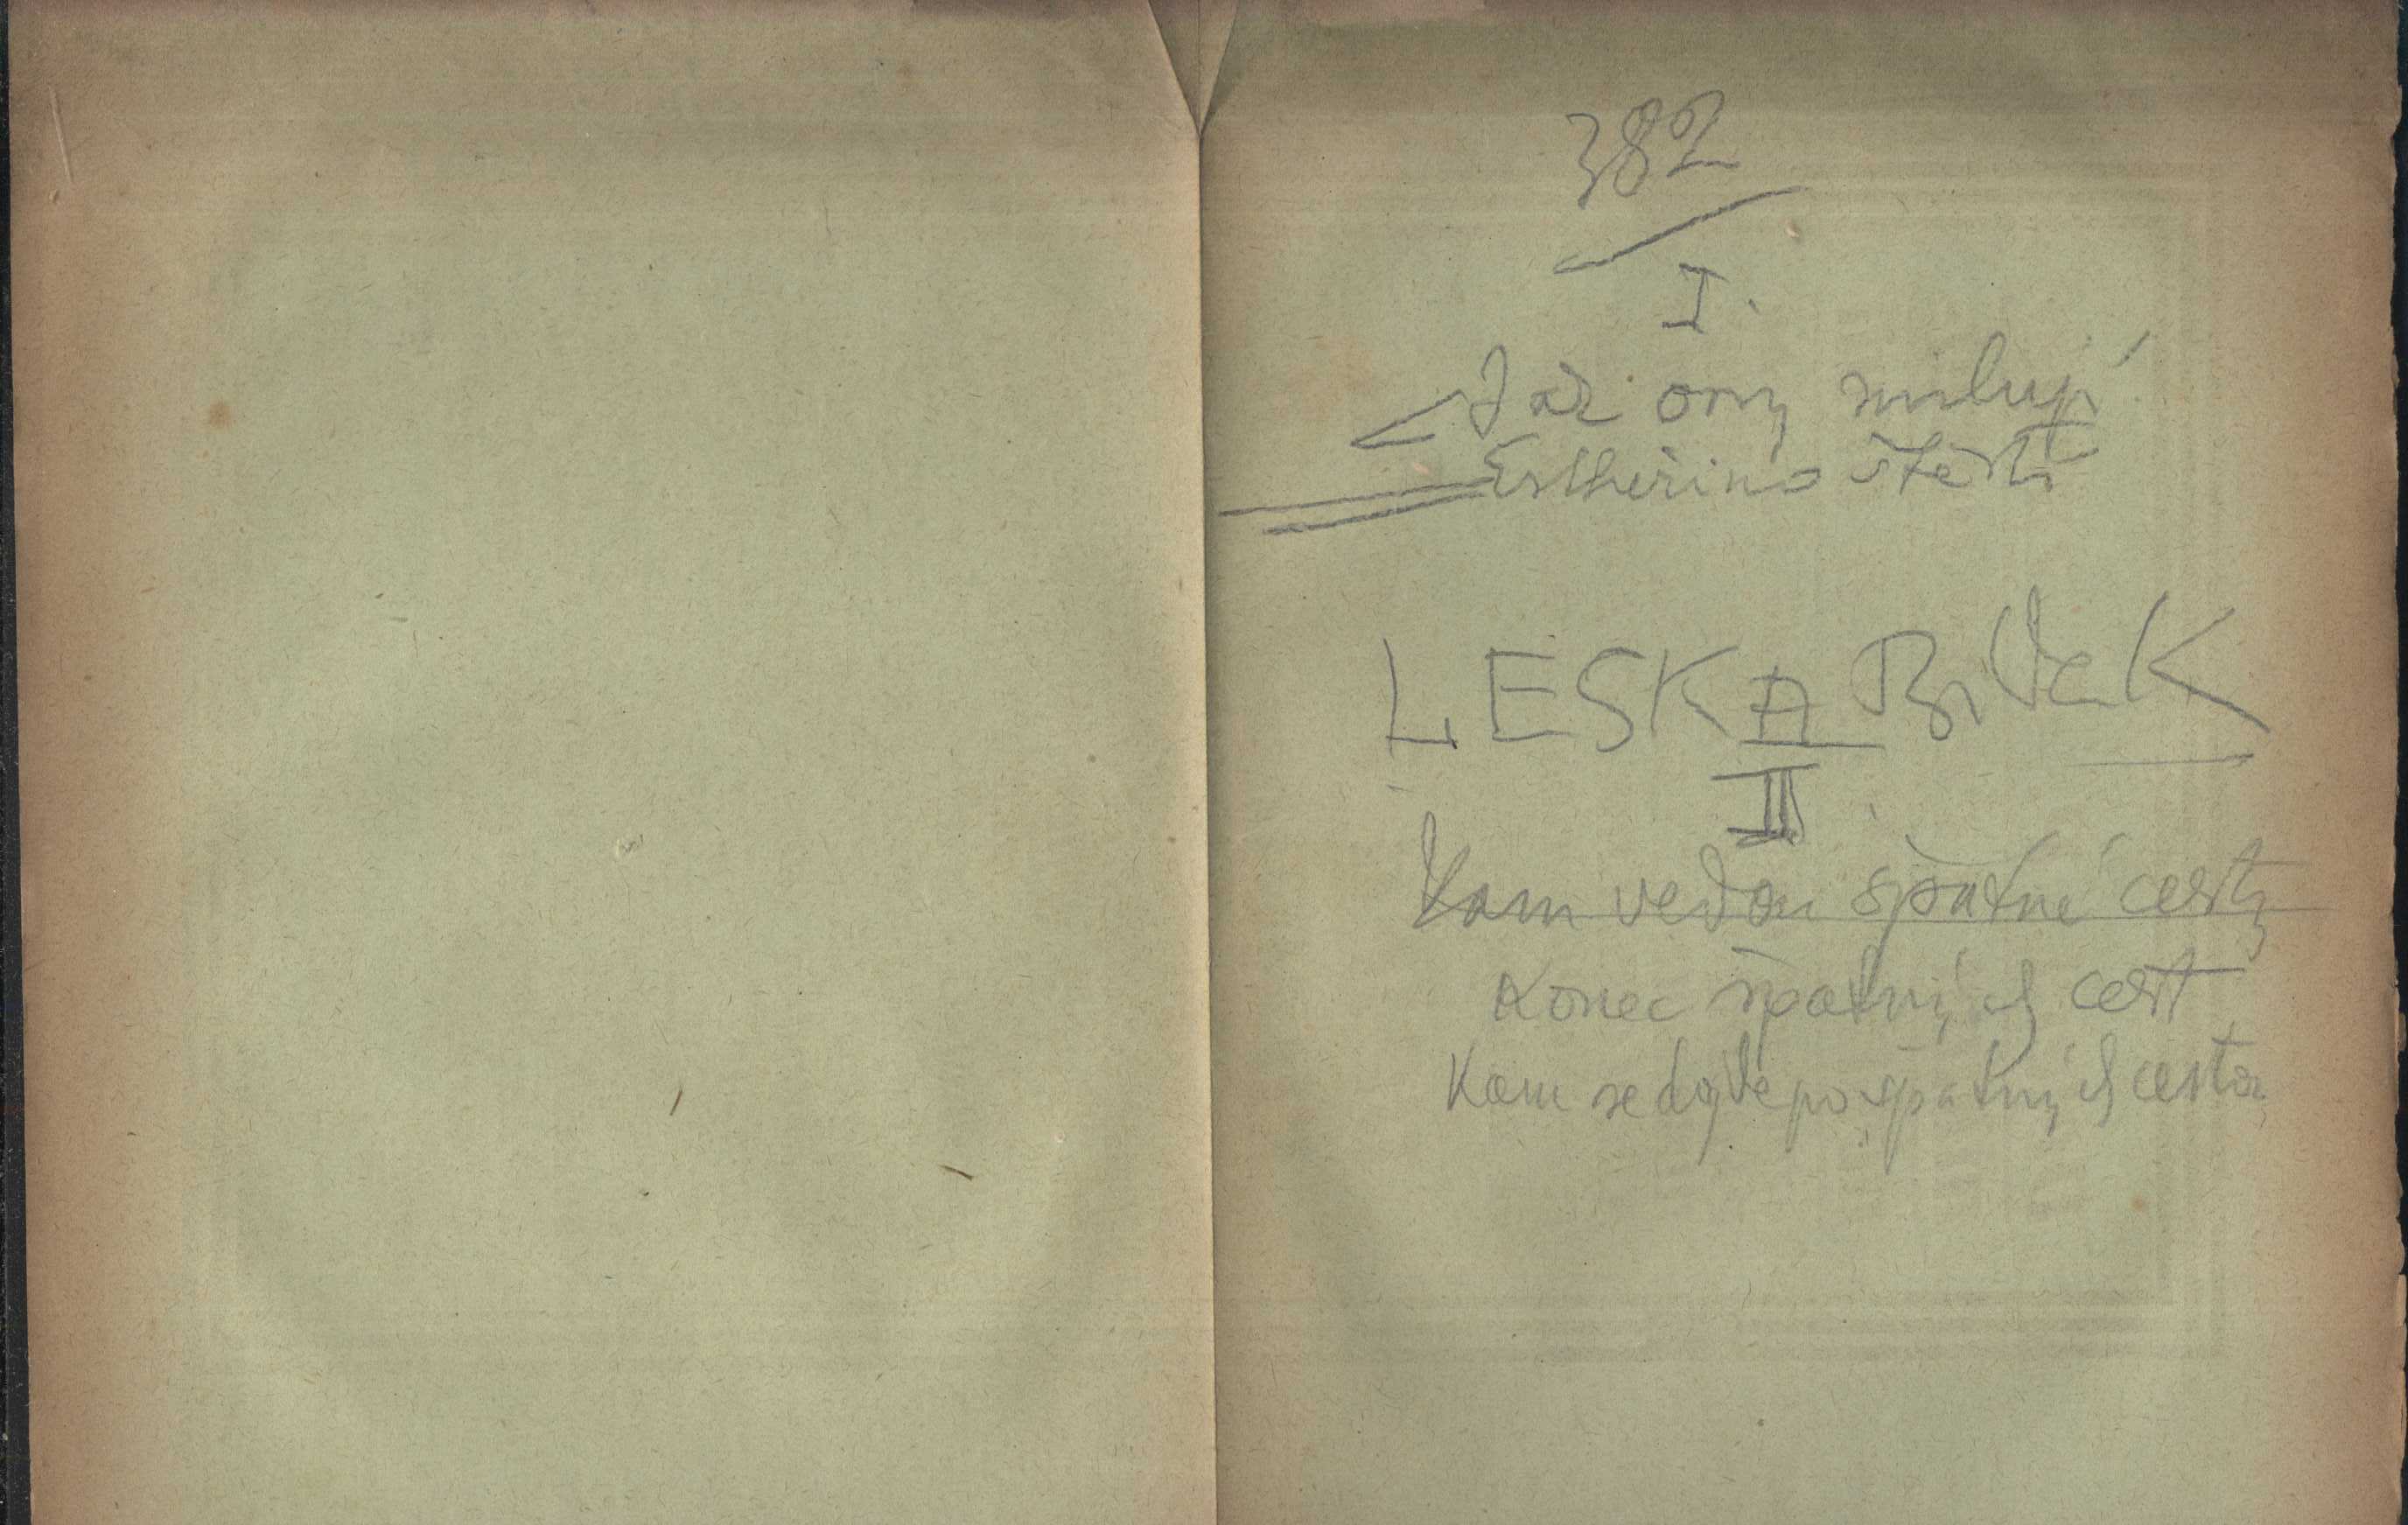 382
I.
Jak ony milují
Estheřino štěstí
LESK A
II
Kam vedou špatné cesty
Konec špatných cest
Kam se dojde po špatných cestá